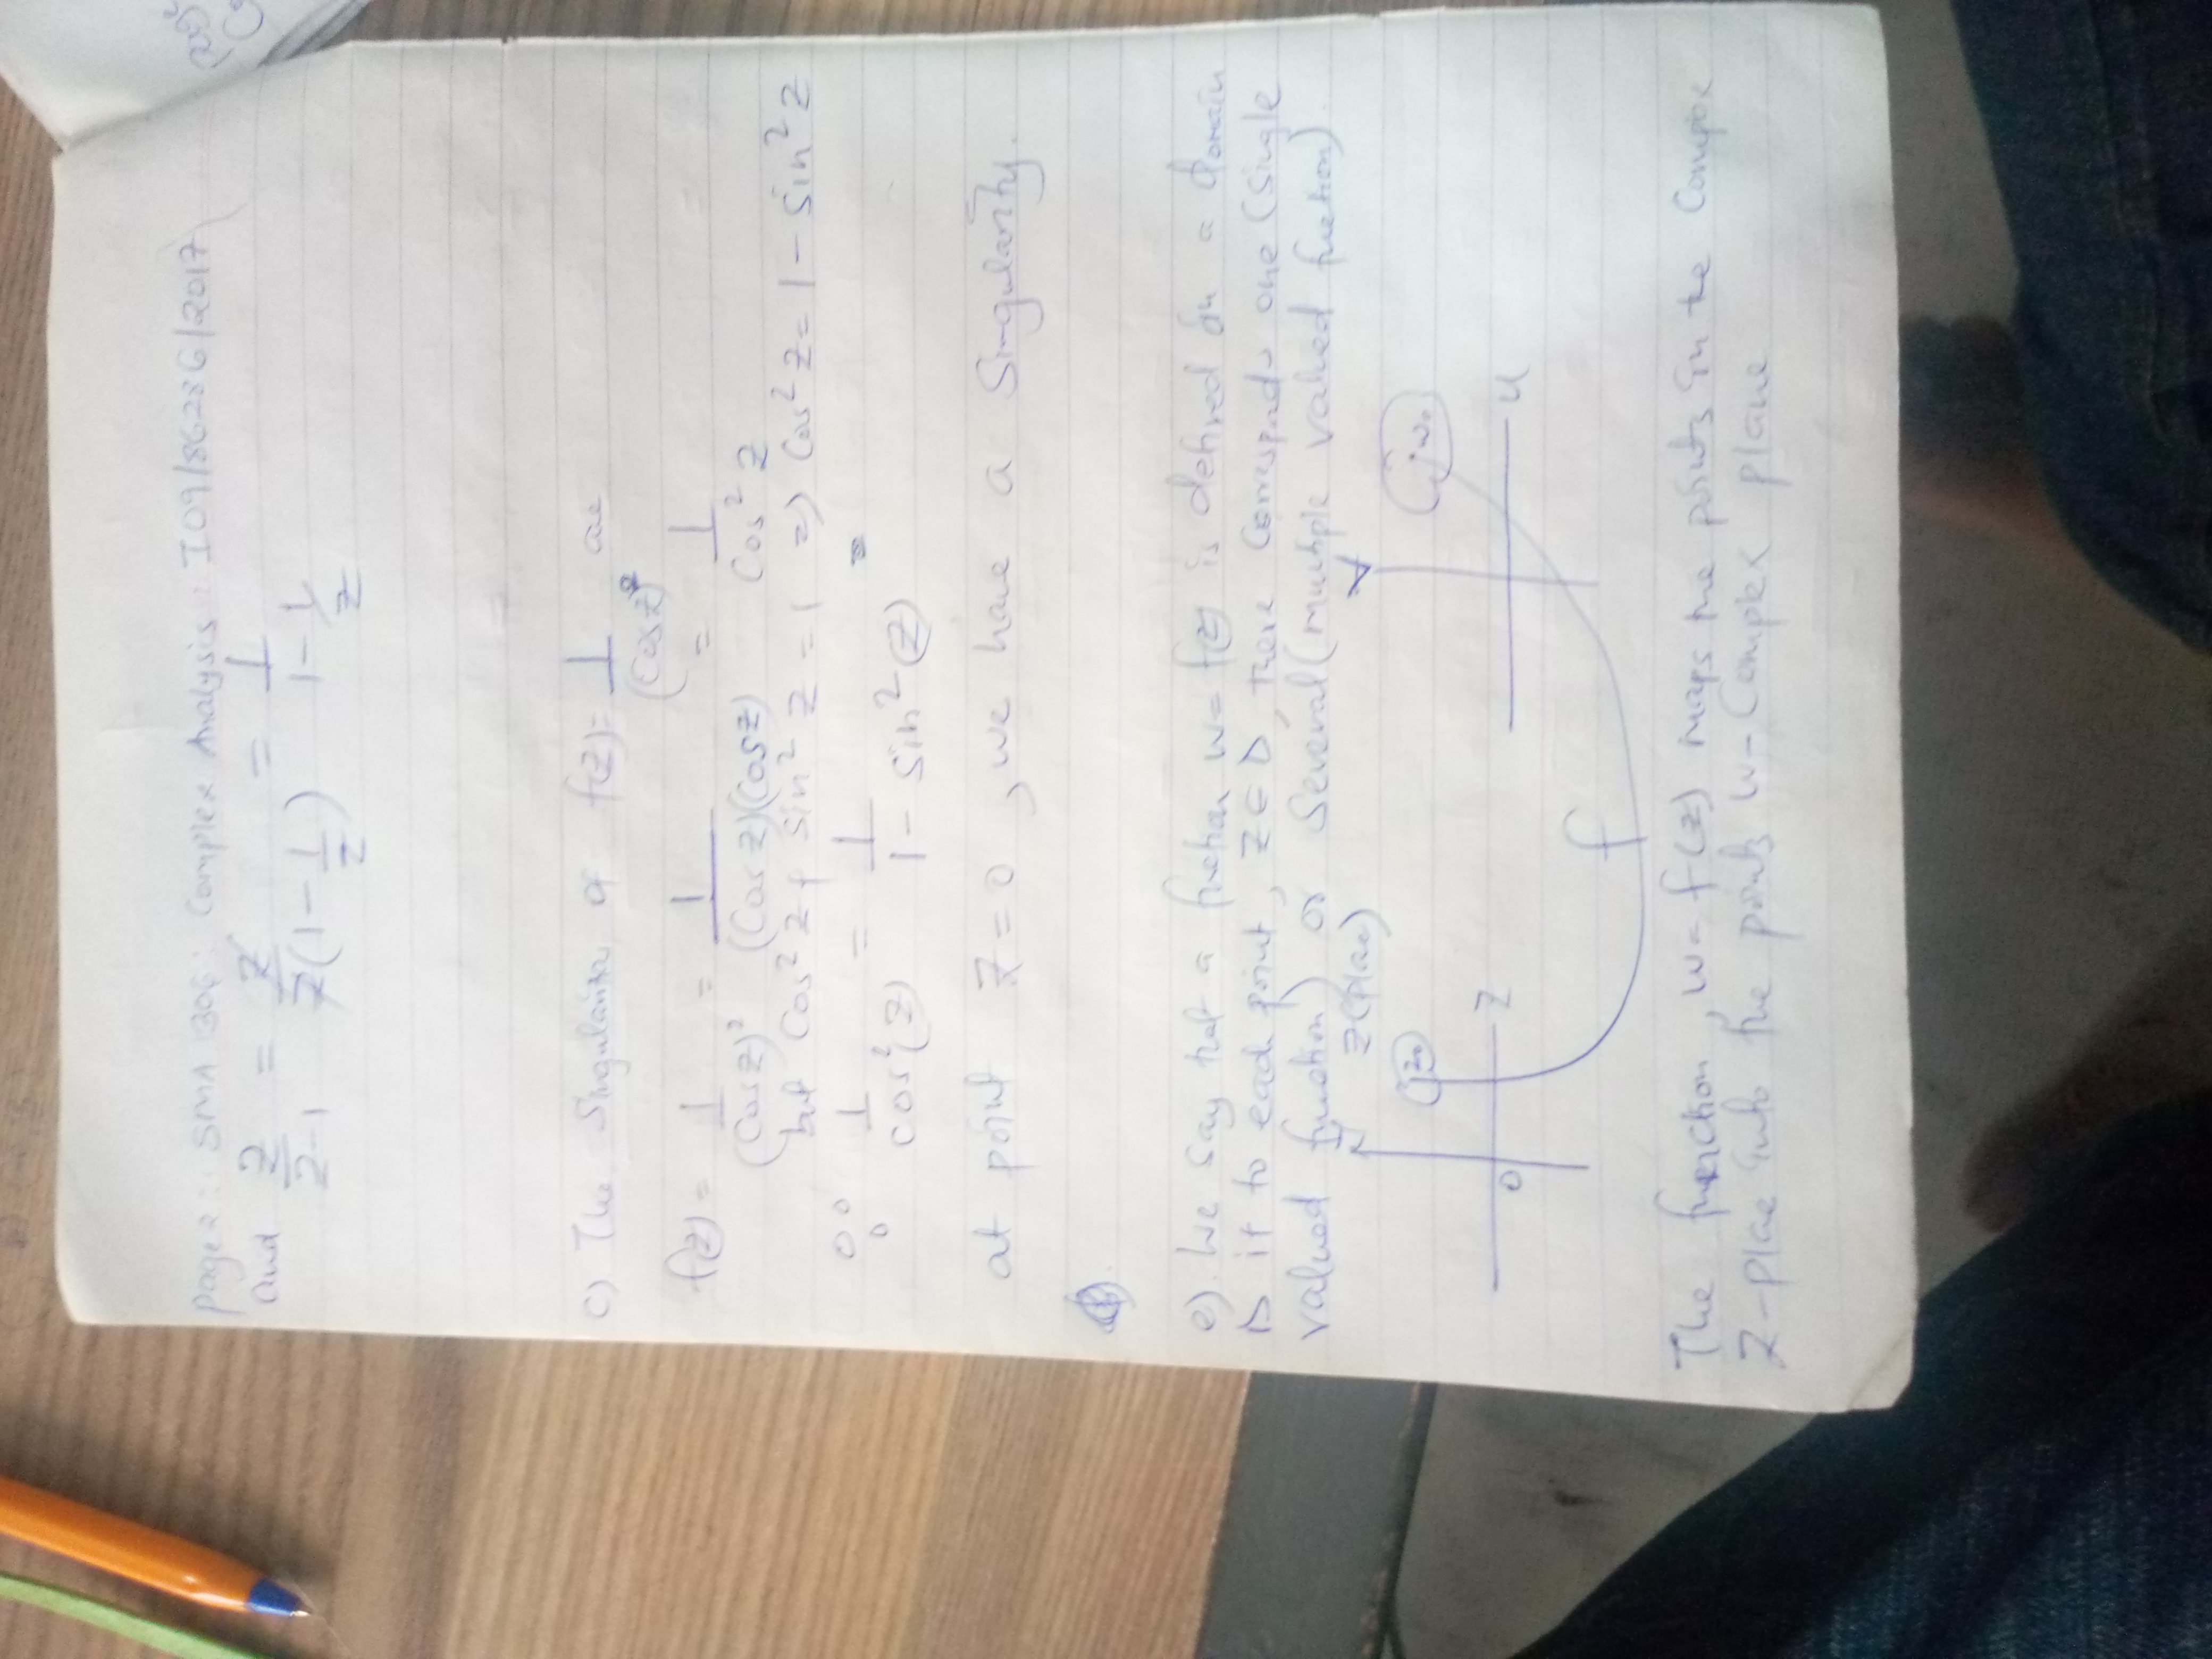 page 2: SMA 1306: Complex Analysis: I09/86286/2017
and z/z-1 = z/z(1-1/z) = 1/1-1/z
c) The Singularities of f(z)= 1/(Cos z)² are
f(z) = 1/(Cos z)² = 1/(Cos z)(Cos z) = 1/Cos² z
but Cos² z + sin² z = 1 => Cos² z = 1 - Sin² z
∴ 1/Cos²(z) = 1/1 - Sin²(z)
at point z=0, we have a Singularity.
e). We say that a function w= f(z) is defined on a Domain
D if to each point, z∈D, there Corresponds one (Single
valued function) or Several (multiple valued function).
z(plae)
z₀
w₀
0
z
u
f
The function, w= f(z) maps the points in the Complex
z-plae into the points w-Complex plane